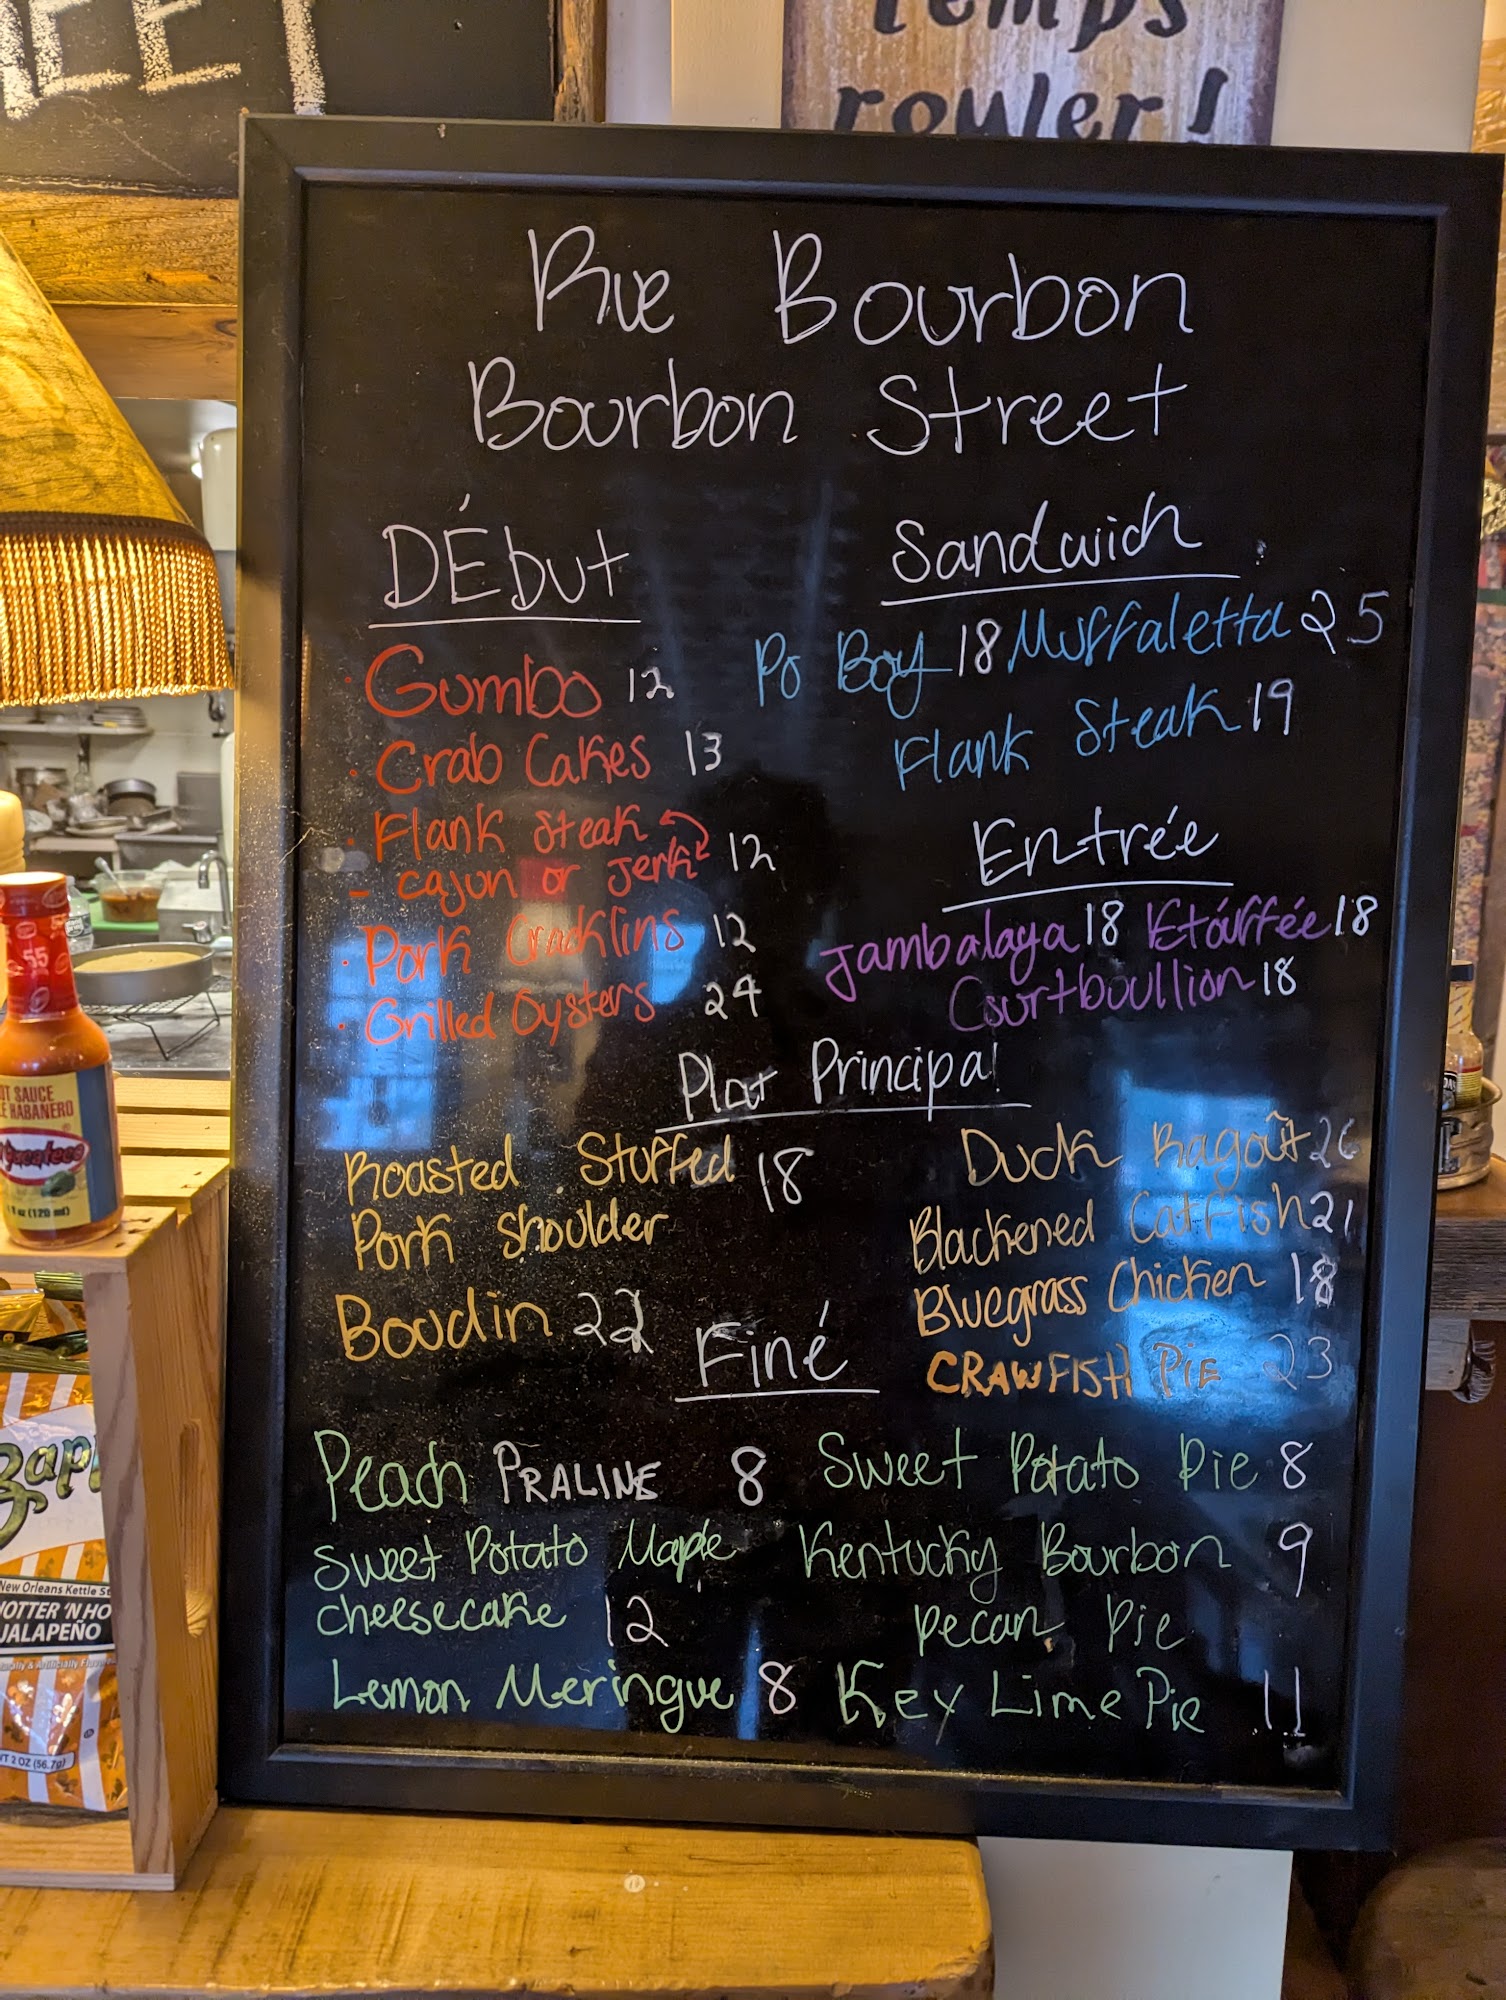 EET
temps
rouler!
Rue Bourbon
Bourbon Street
DÉbut
· Gumbo 12
· Crab Cakes 13
· Flank Steak
- cajun or Jerk 12
· Pork Cracklins 12
· Grilled Oysters 24
Sandwich
Po Boy 18 Muffaletta 25
Flank Steak 19
Entrée
Jambalaya 18 Etáffée 18
Courtboullion 18
Plat Principal
Roasted Stuffed 18
Pork Shoulder
Boudin 22
Duck Ragoût 26
Blackened Catfish 21
Bluegrass Chicken 18
CRAWFISH PIE 23
Finé
Peach PRALINE 8
Sweet Potato Maple
Cheesecake 12
Lemon Meringue 8
Sweet Potato Pie 8
Kentucky Bourbon 9
Pecan Pie
Key Lime Pie 11
55
OT SAUCE
E HABANERO
Yucateco
(120 ml)
Zapp
New Orleans Kettle St
OTTER 'N HO
JALAPEÑO
WT 2 OZ (56.7g)